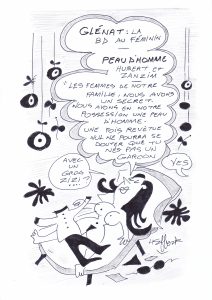 GLÉNAT : LA
BD AU FÉMININ
PEAU D'HOMME
HUBERT ET
ZANZIM
"LES FEMMES DE NOTRE
FAMILLE, NOUS AVONS
UN SECRET.
NOUS AVONS EN NOTRE
POSSESSION UNE PEAU
D'HOMME.
UNE FOIS REVÊTUE
NUL NE POURRA SE
DOUTER QUE TU
N'ES PAS UN
GARÇON
YES
AVEC
UN GROS
ZIZI ?...